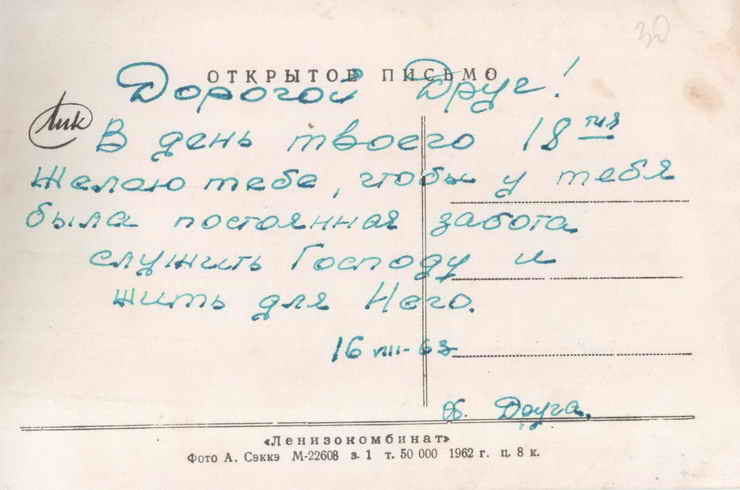 30
ОТКРЫТОЕ ПИСЬМО
Дорогой Друг!
В день твоего 18 тия
Желаю тебе, чтобы у тебя
была постоянная забота
служить Господу и
жить для Него.
16 VIII-63
Друга.
«Ленизокомбинат»
Фото А. Сэккэ М-22608 з. 1 т. 50 000 1962 г. ц. 8 к.